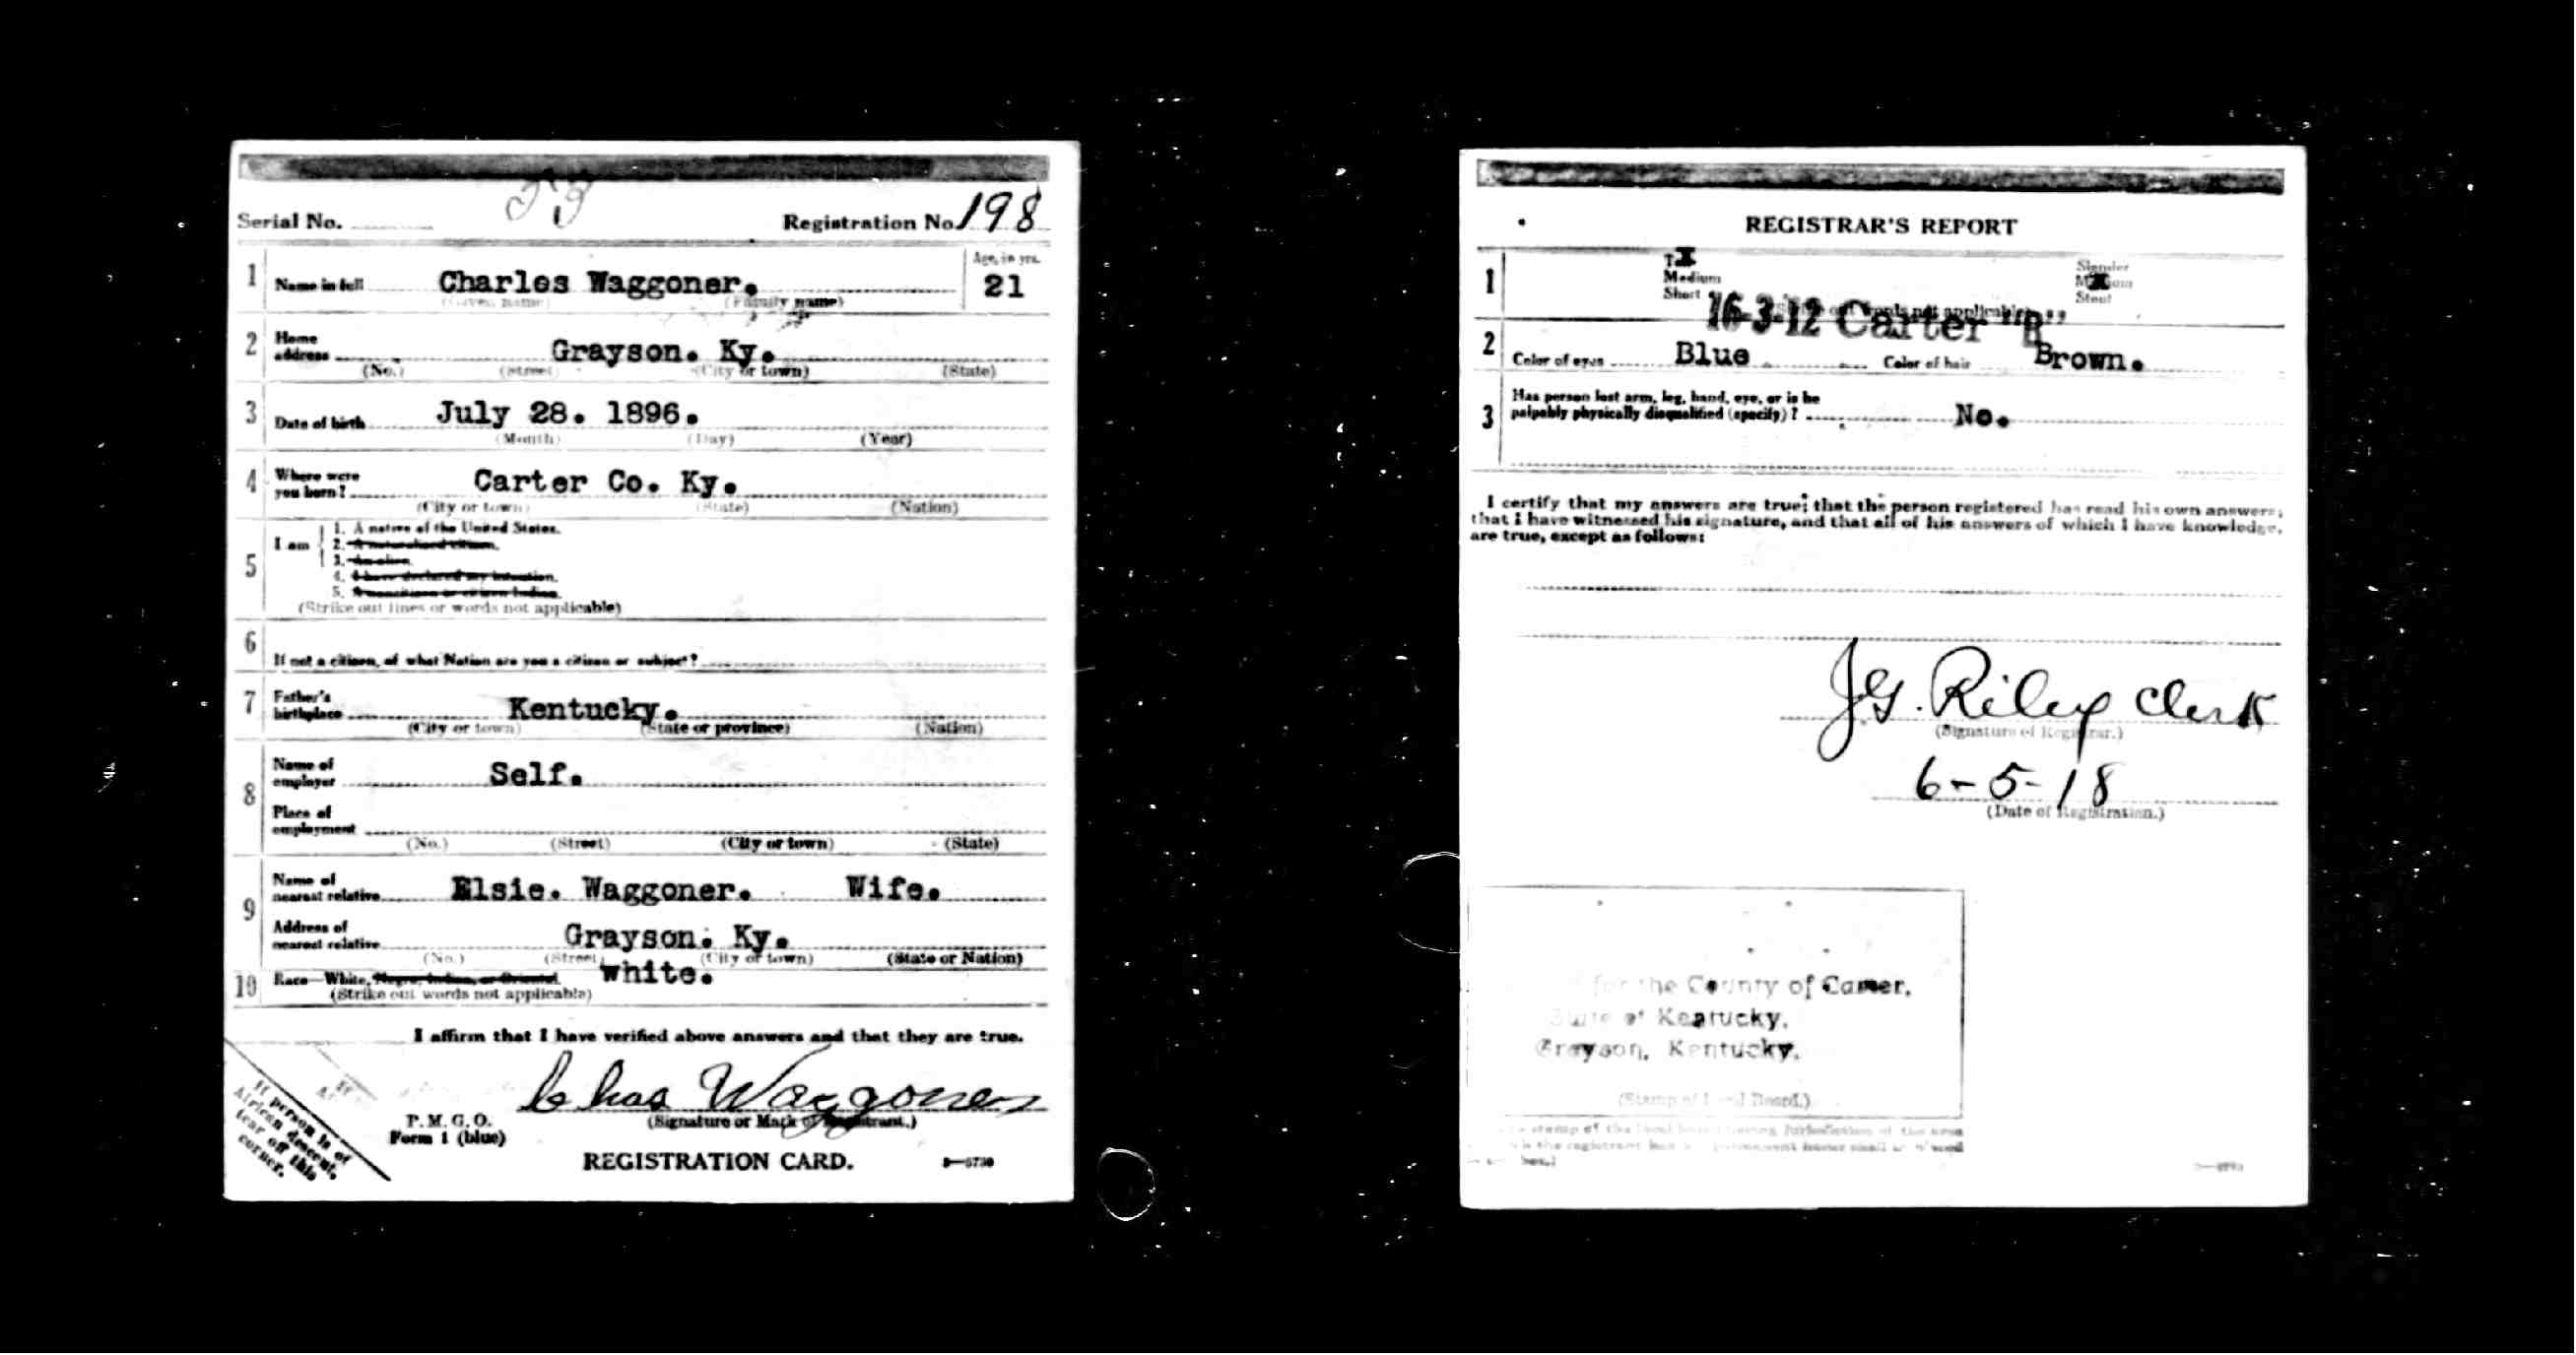 Serial No.
Registration No. 198
1 Name in full Charles Waggoner. Age, in yrs. 21
(Given name) (Family name)
2 Home address Grayson. Ky.
(No.) (Street) (City or town) (State)
3 Date of birth July 28. 1896.
(Month) (Day) (Year)
4 Where were you born? Carter Co. Ky.
(City or town) (State) (Nation)
5 I am
1. A native of the United States.
2. A naturalized citizen.
3. An alien.
4. I have declared my intention.
5. A noncitizen or citizen Indian.
(Strike out lines or words not applicable)
6 If not a citizen, of what Nation are you a citizen or subject?
7 Father's birthplace Kentucky.
(City or town) (State or province) (Nation)
8 Name of employer Self.
Place of employment
(No.) (Street) (City or town) (State)
9 Name of nearest relative Elsie. Waggoner. Wife.
Address of nearest relative Grayson. Ky.
(No.) (Street) (City or town) (State or Nation)
10 Race—White, Negro, Indian, or Oriental. White.
(Strike out words not applicable)
I affirm that I have verified above answers and that they are true.
Chas Waggoner
(Signature or Mark of Registrant.)
P. M. G. O.
Form 1 (blue)
REGISTRATION CARD.
If person is of
African descent,
tear off this
corner.
REGISTRAR'S REPORT
1
Medium
Short
Slender
Stout
16-3-12 Carter "B"
2 Color of eyes Blue Color of hair Brown.
3 Has person lost arm, leg, hand, eye, or is he
palpably physically disqualified (specify)? No.
I certify that my answers are true; that the person registered has read his own answers;
that I have witnessed his signature, and that all of his answers of which I have knowledge,
are true, except as follows:
J.G. Riley clerk
(Signature of Registrar.)
6-5-18
(Date of Registration.)
for the County of Carter,
State of Kentucky.
Grayson, Kentucky.
(Stamp of Local Board.)